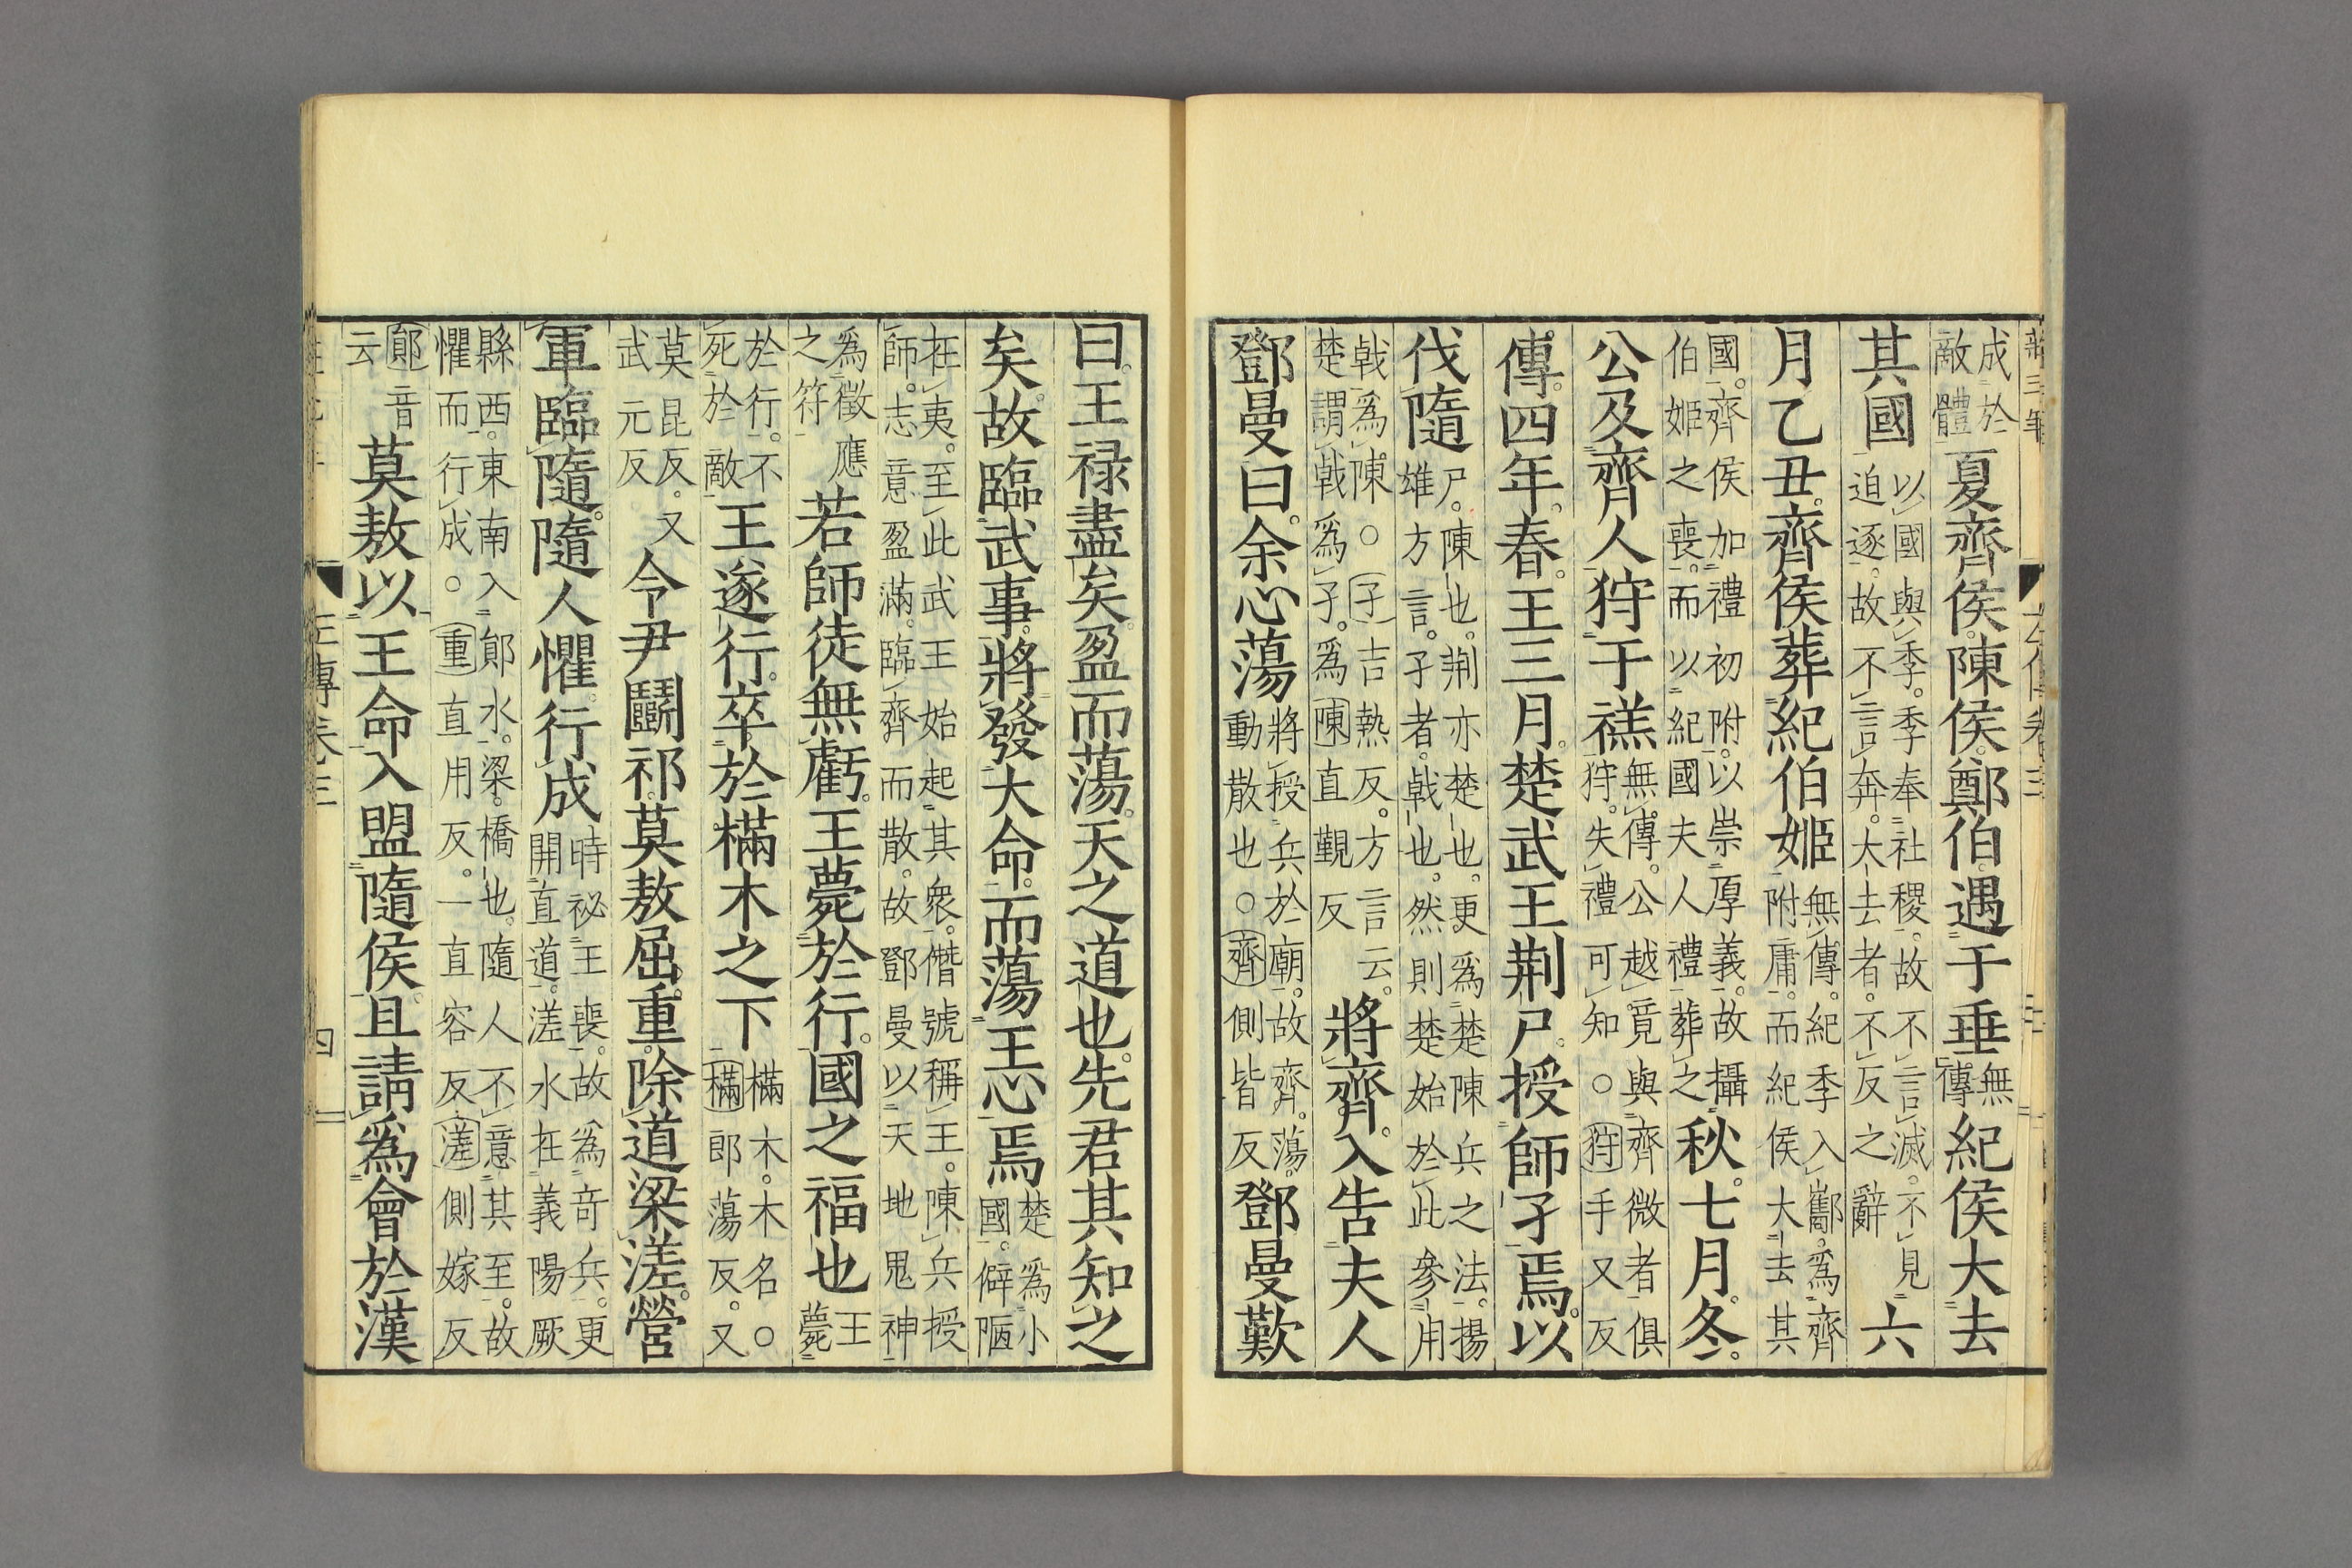 成於敵體夏齊侯陳侯鄭伯遇于垂無傳紀侯大去
其國以國與季季奉社稷故不言滅不見迫逐故不言奔大去者不反之辭六
月乙丑齊侯葬紀伯姬無傳紀季入酅爲齊附庸而紀侯大去其
國齊侯加禮初附以崇厚義故攝伯姬之喪而以紀國夫人禮葬之秋七月冬
公及齊人狩于禚無傳公越竟與齊微者俱狩失禮可知○狩手又反
傳四年春王三月楚武王荆尸授師孑焉以
伐隨尸陳也荆亦楚也更爲楚陳兵之法揚雄方言孑者戟也然則楚始於此參用
戟爲陳○孑吉熱反方言云楚謂戟爲孑爲陳直覲反將齊入告夫人
鄧曼曰余心蕩將授兵於廟故齊蕩動散也○齊側皆反鄧曼歎
曰王禄盡矣盈而蕩天之道也先君其知之
矣故臨武事將發大命而蕩王心焉楚爲小國僻陋
在夷至此武王始起其衆僭號稱王陳兵授師志意盈滿臨齊而散故鄧曼以天地鬼神
爲徵應之符若師徒無虧王薨於行國之福也王薨
於行不死於敵王遂行卒於樠木之下樠木木名○樠郎蕩反又
莫昆反又武元反令尹鬬祁莫敖屈重除道梁溠營
軍臨隨隨人懼行成時祕王喪故爲奇兵更開直道溠水在義陽厥
縣西東南入鄖水梁橋也隨人不意其至故懼而行成○重直用反一直容反溠側嫁反
鄖音云莫敖以王命入盟隨侯且請爲會於漢